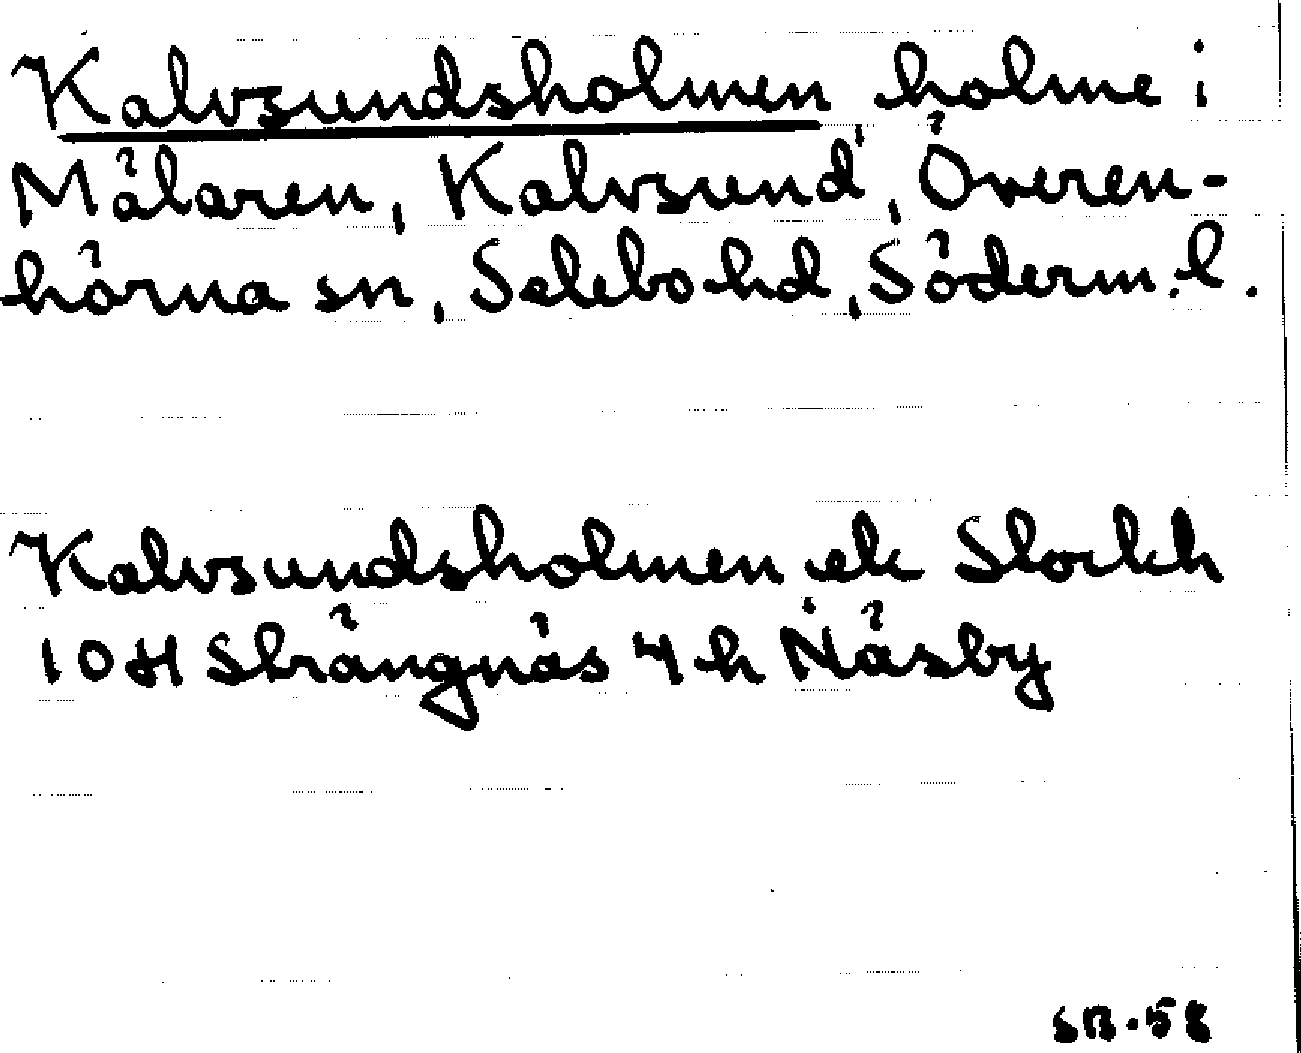 Kalvsundsholmen holme i
Mälaren, Kalvsund, Överen-
hörna sn, Selebo hd, Söderm. l.
Kalvsundsholmen ek Stockh
10H Strängnäs 4 h Näsby
SB.58